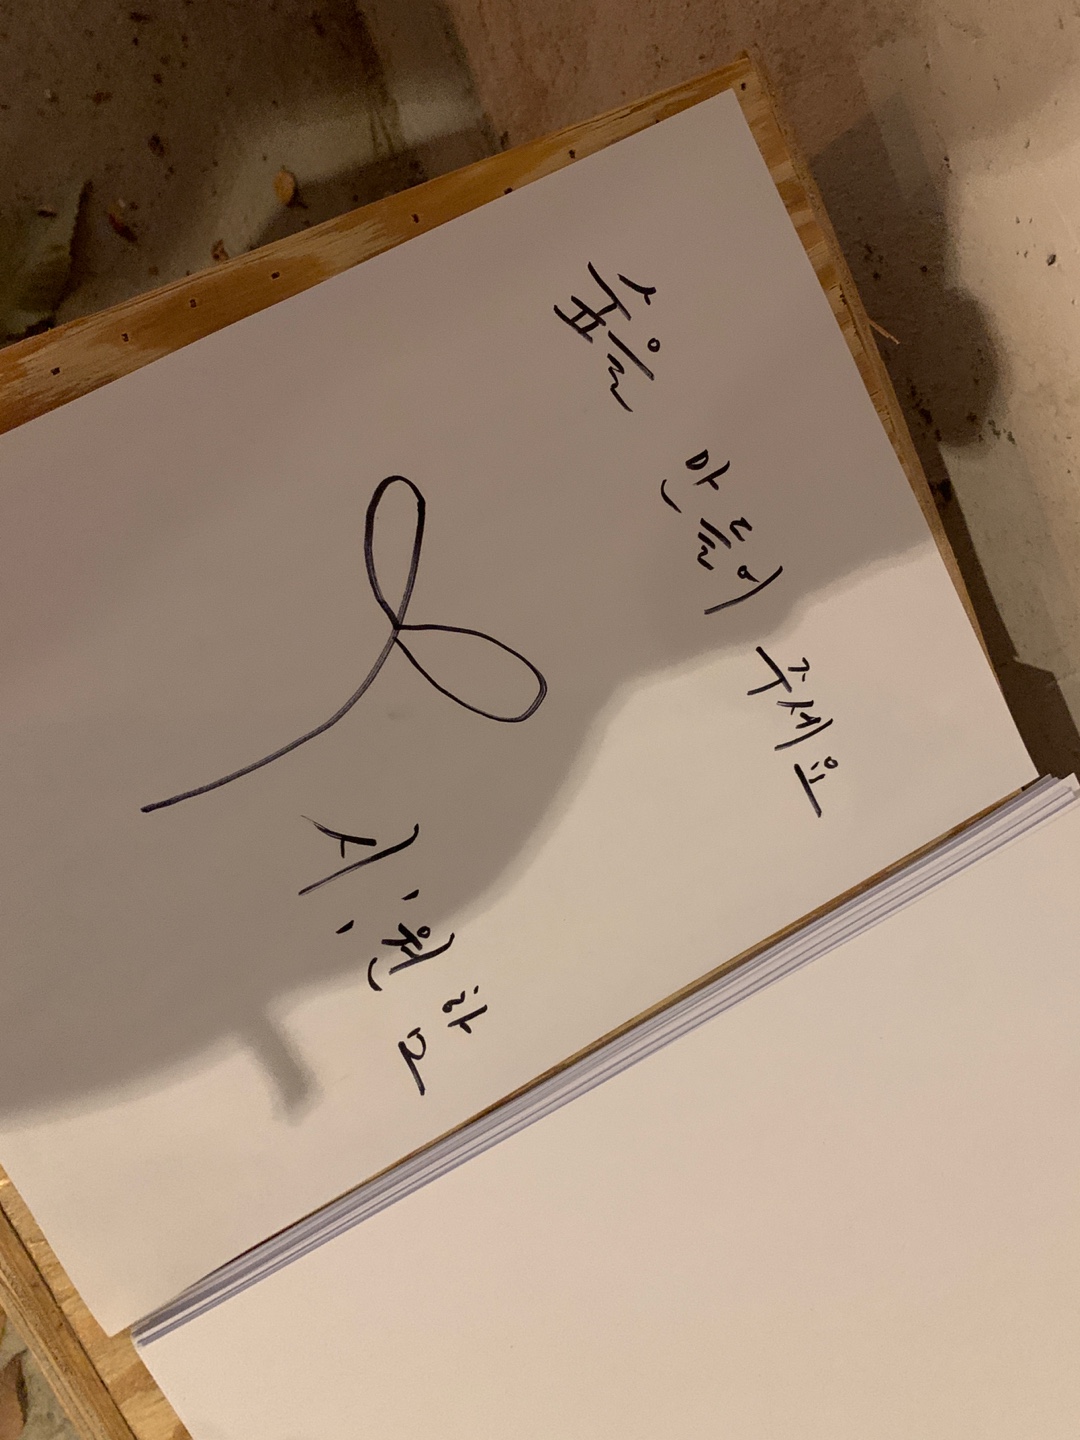 숲을 만들어 주세요
시:원함